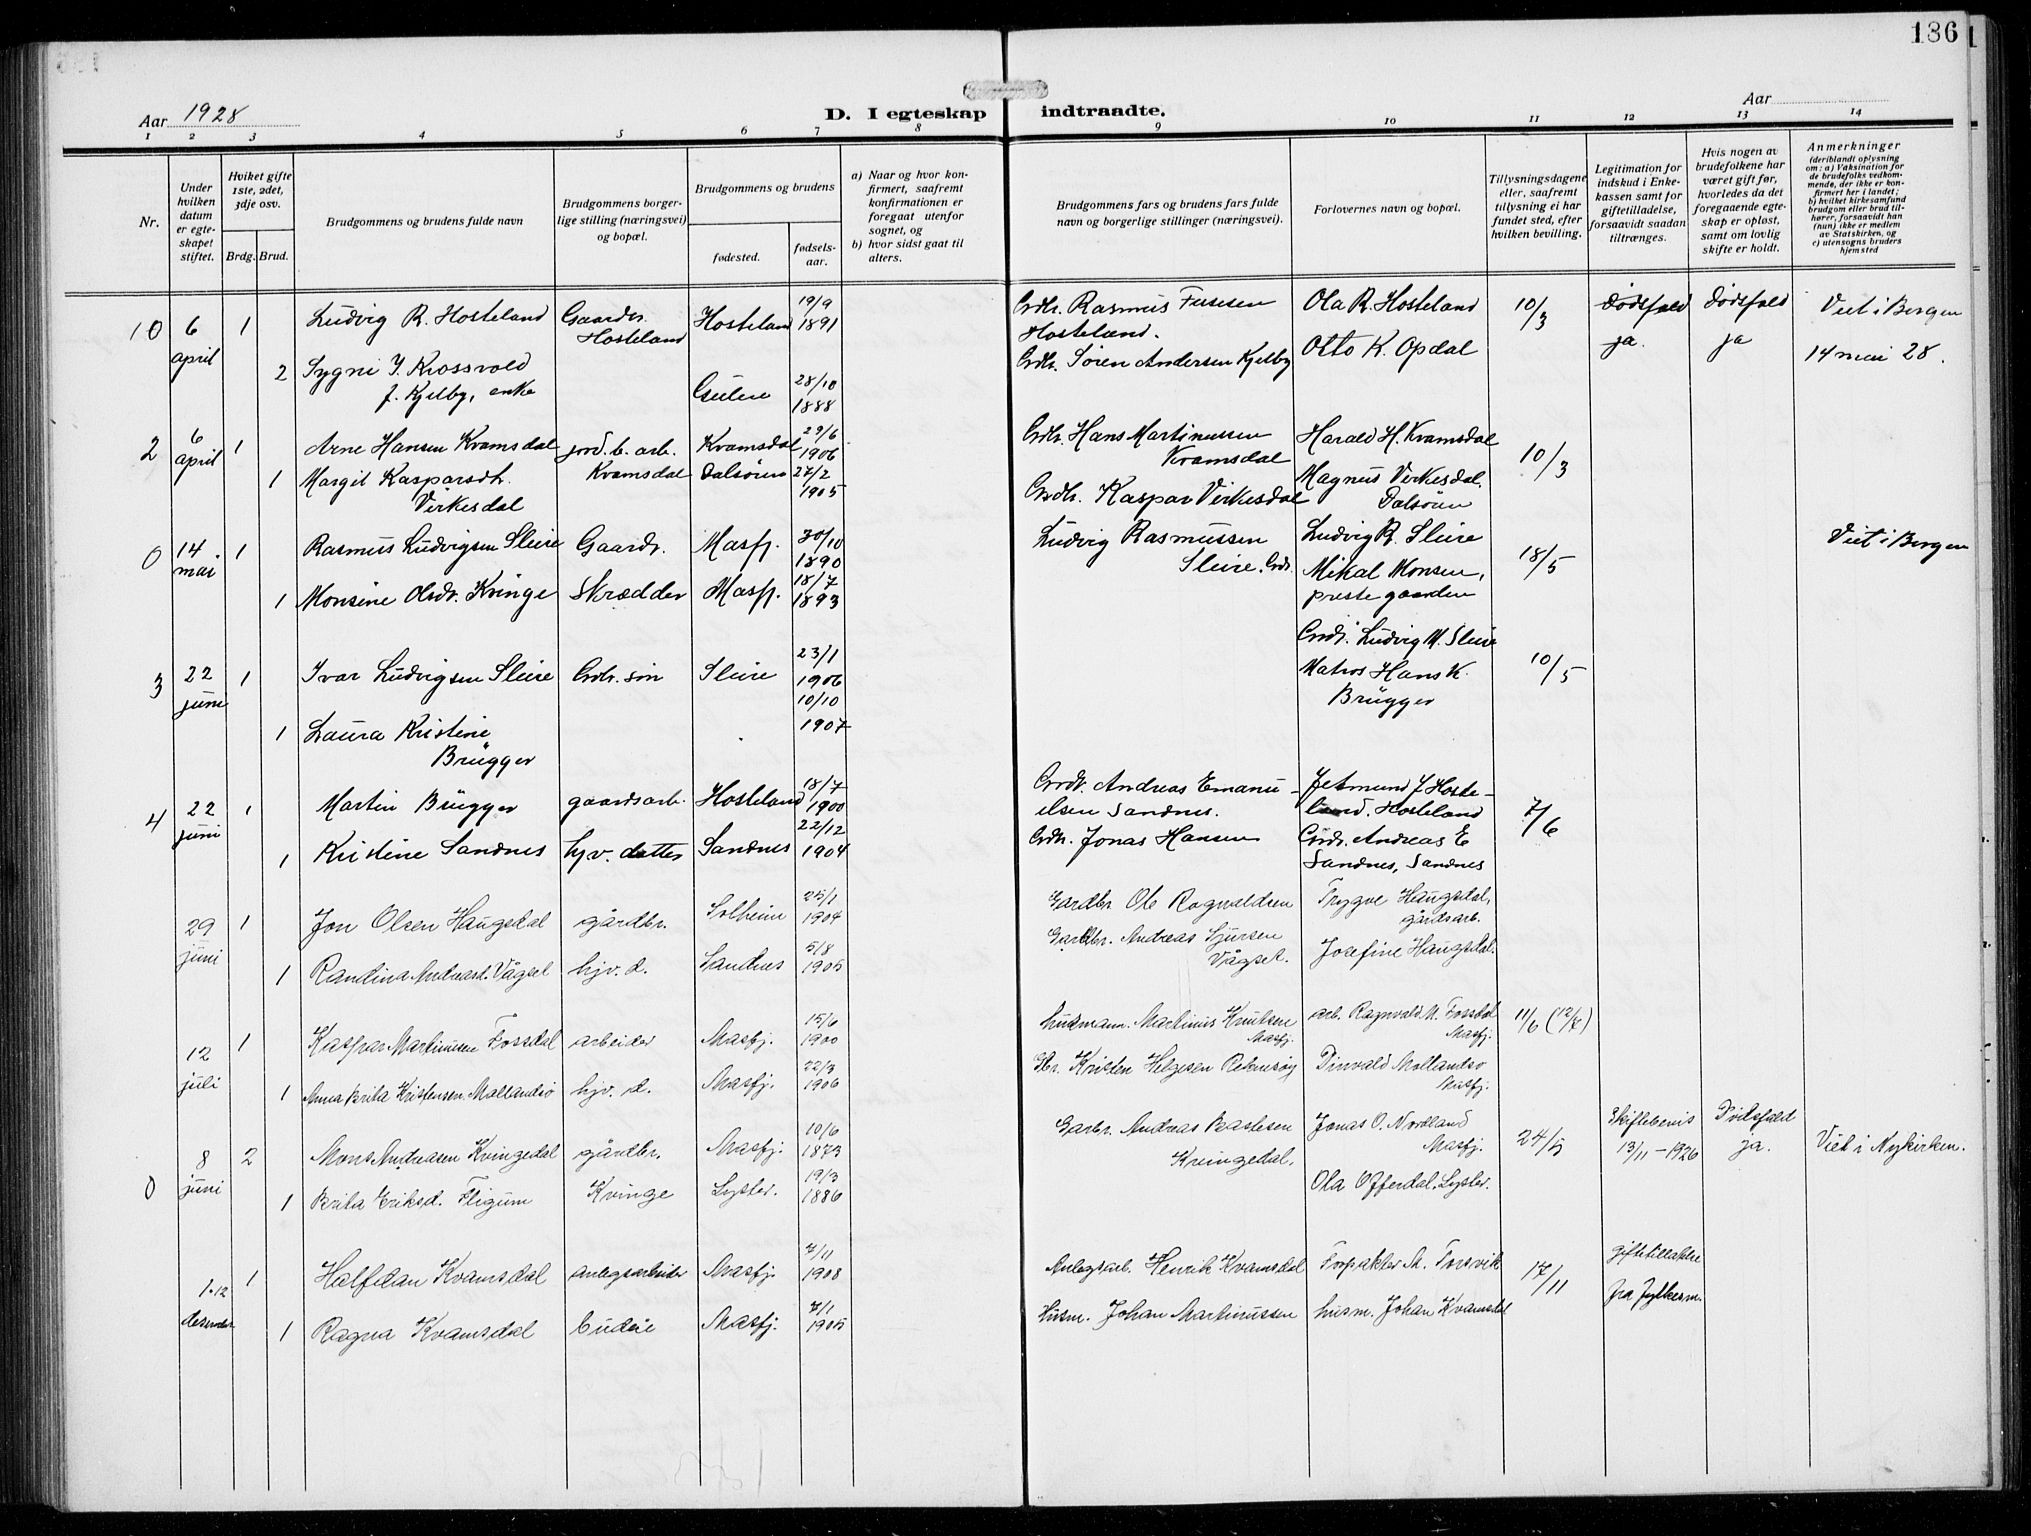 186
Aar 1928
D. I egteskap indtraadte.
Aar
1 2 3 4 5 6 7 8 9 10 11 12 13 14
Nr.
Under hvilken datum er egte-skapet stiftet.
Hviket gifte 1ste, 2det, 3dje osv.
Brdg. Brud.
Brudgommens og brudens fulde navn
Brudgommens borger-lige stilling (næringsvei) og bopæl.
Brudgommens og brudens
fødested.
fødsels-aar.
a) Naar og hvor kon-firmert, saafremt konfirmationen er foregaat utenfor sognet, og
b) hvor sidst gaat til alters.
Brudgommens fars og brudens fars fulde navn og borgerlige stillinger (næringsvei).
Forlovernes navn og bopæl.
Tillysningsdagene eller, saafremt tillysning ei har fundet sted, efter hvilken bevilling.
Legitimation for indskud i Enke-kassen samt for giftetilladelse, forsaavidt saadan tiltrænges.
Hvis nogen av brudefolkene har været gift før, hvorledes da det foregaaende egte-skap er opløst, samt om lovlig skifte er holdt.
Anmerkninger
(deriblandt oplysning om: a) Vaksination for de brudefolks vedkom-mende, der ikke er kon-firmert her i landet; b) hvilket kirkesamfund brudgom eller brud til-hører, forsaavidt han (hun) ikke er medlem av Statskirken, og c) utensogns bruders hjemsted
10 6 april 1 Ludvig R. Hosteland Gaardbr. Hosteland Hosteland 19/9 1891 Grdbr. Rasmus Hosteland. Ola R. Hosteland 10/3 Dødsfald ja. Dødsfald ja Viet i Bergen
2 Sygni J. Krossvold f. Kjelby, enke Gulen 28/10 1888 Grdbr. Søren Andersen Kjelby Otto K. Opdal 14 mai 28.
2 6 april 1 Arne Hansen Kvamsdal jord. b. arb. Kvamsdal Kvamsdal 29/6 1906 Grdbr. Hans Martinussen Kvamsdal Harald H. Kvamsdal 10/3
1 Margit Kasparsdtr. Virkesdal Dalsøren 27/2 1905 Grdbr. Kaspar Virkesdal Magnus Virkesdal. Dalsøren
0 14 mai 1 Rasmus Ludvigsen Sleire Gaardbr. Masfj. 30/10 1890 Ludvig Rasmussen Sleire. Grdbr. Ludvig R. Sleire 18/5 Viet i Bergen
1 Monsine Olsdr. Kvinge Skrædder Masfj. 18/7 1893 Mikal Monsen, prestegaarden
3 22 juni 1 Ivar Ludvigsen Sleire Grdbr. søn Sleire 23/1 1906 Grdbr. Ludvig M. Sleire 10/5
1 Laura Kristine Brügger 10/10 1907 Matros Hans K. Brügger
4 22 juni 1 Martin Brügger gaardsarb. Hosteland 18/7 1900 Grdbr. Andreas Emanu-elsen Sandnes. Jetmund J Hoste-land. Hosteland 7/6
1 Kristine Sandnes hjv. datter Sandnes 22/12 1904 Grdbr. Jonas Hansen Grdbr. Andreas E Sandnes, Sandnes
29 juni 1 Jon Olsen Haugsdal gårdbr. Solheim 25/1 1904 Gardbr. Ole Ragnvaldsen Trygve Haugsdal, gårdsarb.
1 Randina Andreasd. Vågset hjv. d. Sandnes 5/8 1905 Gardbr. Andreas Sjursen Vågset. Josefine Haugsdal.
12 juli 1 Kaspar Martinusen Fossdal arbeider Masfj. 15/6 1900 husmann. Martinus Knutsen Masfj. arb. Ragnvald M. Fossdal Masfj. 11/6 (12/7)
1 Anna Brita Kristensen. Mollandsø hjv. d. Masfj. 22/3 1906 Kristen Helgesen Mollandsø Masfj.
8 juni 2 Mons Andreasen Kvingedal gårdbr. Masfj. 10/6 1873 Garbr. Andreas Bastesen Kvingedal. Jonas O. Nordland Masfj. 24/5 Skiftebevis 13/11 - 1926 Dødsfald ja. Viet i Nykirken.
0 1 Brita Eriksd. Fligum Kvinge Lyster. 19/3 1886 Ola Offerdal. Lyster.
1-12 desember 1 Halfdan Kvamsdal anlegsarbeider Masfj. 7/11 1908 Anlegsarb. Henrik Kvamsdal Forpakter M. Forsvik 17/11 giftetillatelse fra fylkesm.
1 Ragna Kvamsdal budeie Masfj. 7/1 1905 Husm. Johan Martinussen husm. Johan Kvamsdal